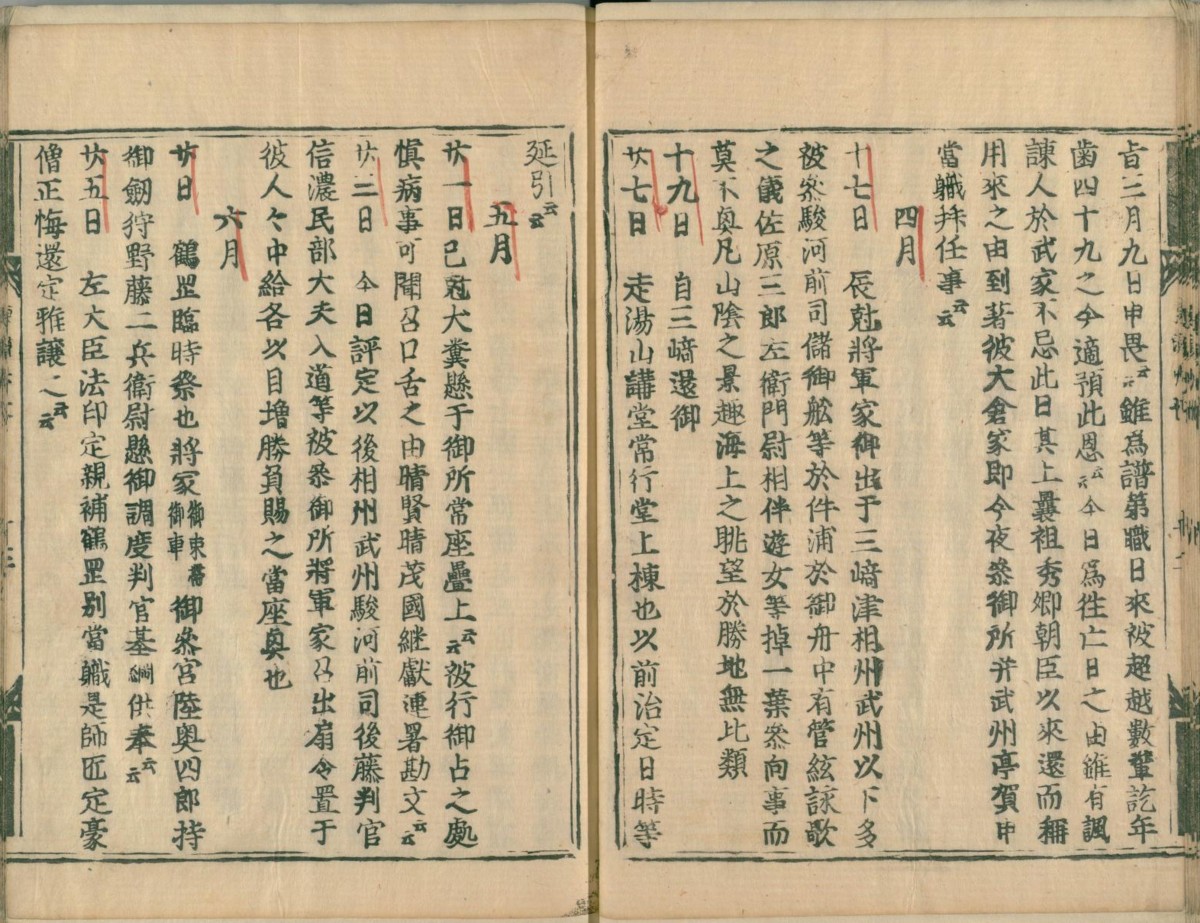 旨三月九日申畏云云雖爲譜第職日來被超越數輩訖年
齒四十九之今適預此恩云云今日爲徃亡日之由雖有諷
諫人於武家不忌此日其上曩祖秀郷朝臣以來還而稱
用來之由到著彼大倉家即今夜叅御所并武州亭賀申
當職拝任事云云
四月
十七日 辰尅將軍家御出于三﨑津相州武州以下多
被叅駿河前司儲御舩等於件浦於御舟中有管絃詠歌
之儀佐原三郎左衛門尉相伴遊女等掉一葉叅向事而
莫不奥凡山陰之景趣海上之眺望於勝地無比類
十九日 自三﨑還御
廿七日 走湯山講堂常行堂上棟也以前治定日時等
延引云云
五月
廿一日己尅犬糞懸于御所常座疊上云云被行御占之處
愼病事可聞召口舌之由晴賢晴茂國継獻連署勘文云云
廿三日 今日評定以後相州武州駿河前司後藤判官
信濃民部大夫入道等被叅御所將軍家召出扇令置于
彼人々中給各以目増勝負賜之當座奥也
六月
廿日 鶴罡臨時祭也將家御束帶御車御叅宮陸奥四郎持
御劔狩野藤二兵衛尉懸御調度判官基綱供奉云云
廿五日 左大臣法印定親補鶴罡別當職是師匠定豪
僧正悔還定雅讓之云云